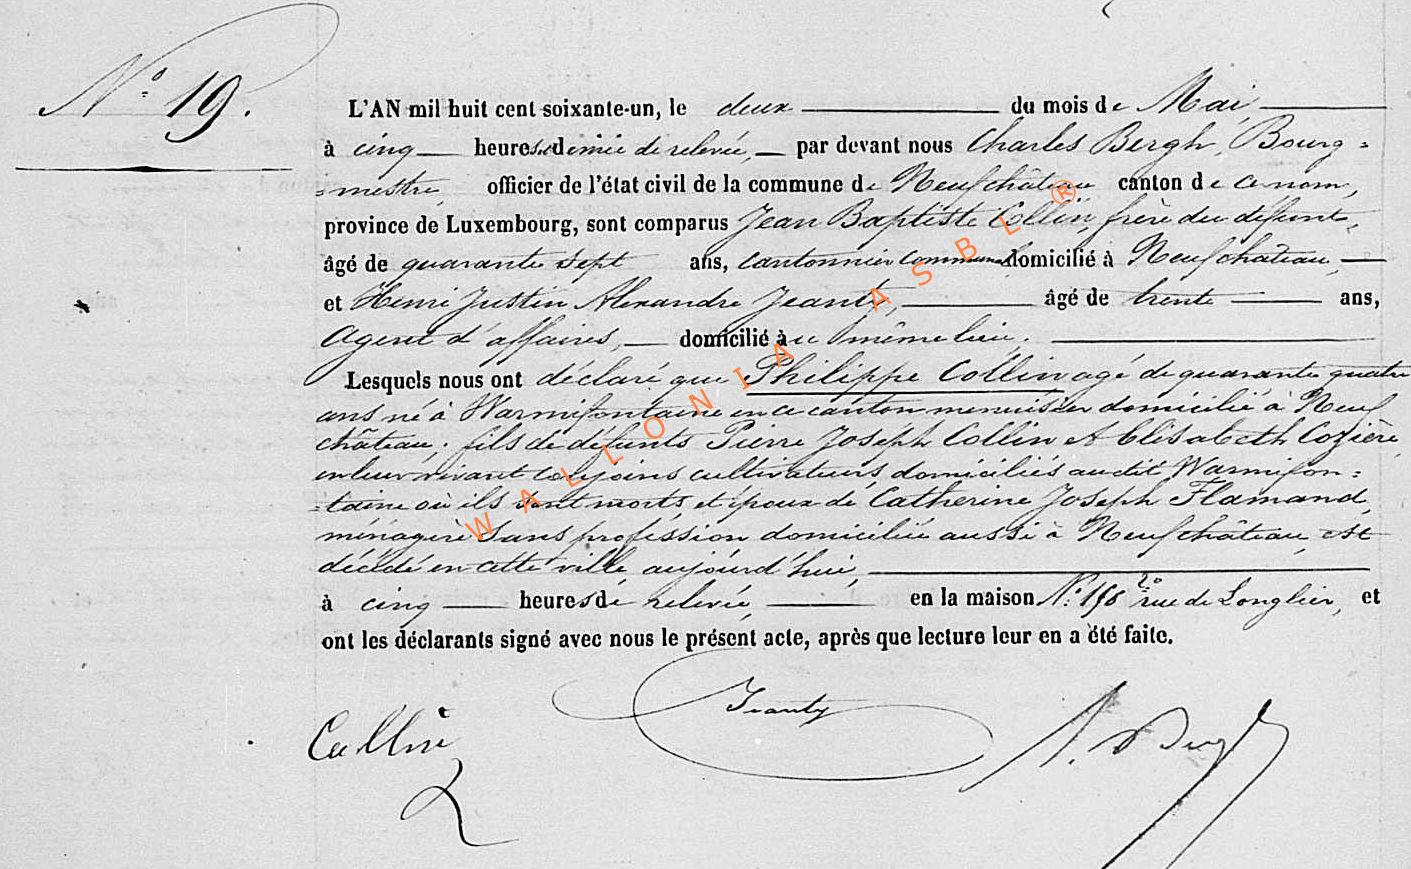 N° 19.
L'AN mil huit cent soixante-un, le deux du mois de Mai,
à cinq heures et demie de relevée, par devant nous Charles Bergh, Bourg=
=mestre, officier de l'état civil de la commune de Neufchâteau canton de ce nom,
province de Luxembourg, sont comparus Jean Baptiste Collin, frère du défunt,
âgé de quarante sept ans, cantonnier communal domicilié à Neufchateau,
et Henri Justin Alexandre Jeanty, âgé de trente ans,
Agent d'affaires, domicilié au même lieu.
Lesquels nous ont déclaré que Philippe Collin agé de quarante quatre
ans né à Warmifontaine en ce canton menuisier domicilié à Neuf
château, fils de défunts Pierre Joseph Collin et Elisabeth Cozière
en leur vivant conjoins cultivateurs domiciliés audit Warmifon=
=taine où ils sont morts, et époux de Catherine Joseph Flamand,
ménagère sans profession domiciliée aussi à Neufchâteau, est
décédé en cette ville aujourd'hui,
à cinq heures de relevée, en la maison N° rue de Longlier, et
ont les déclarants signé avec nous le présent acte, après que lecture leur en a été faite.
Collin Jeanty
WALLONIA ASBL ®